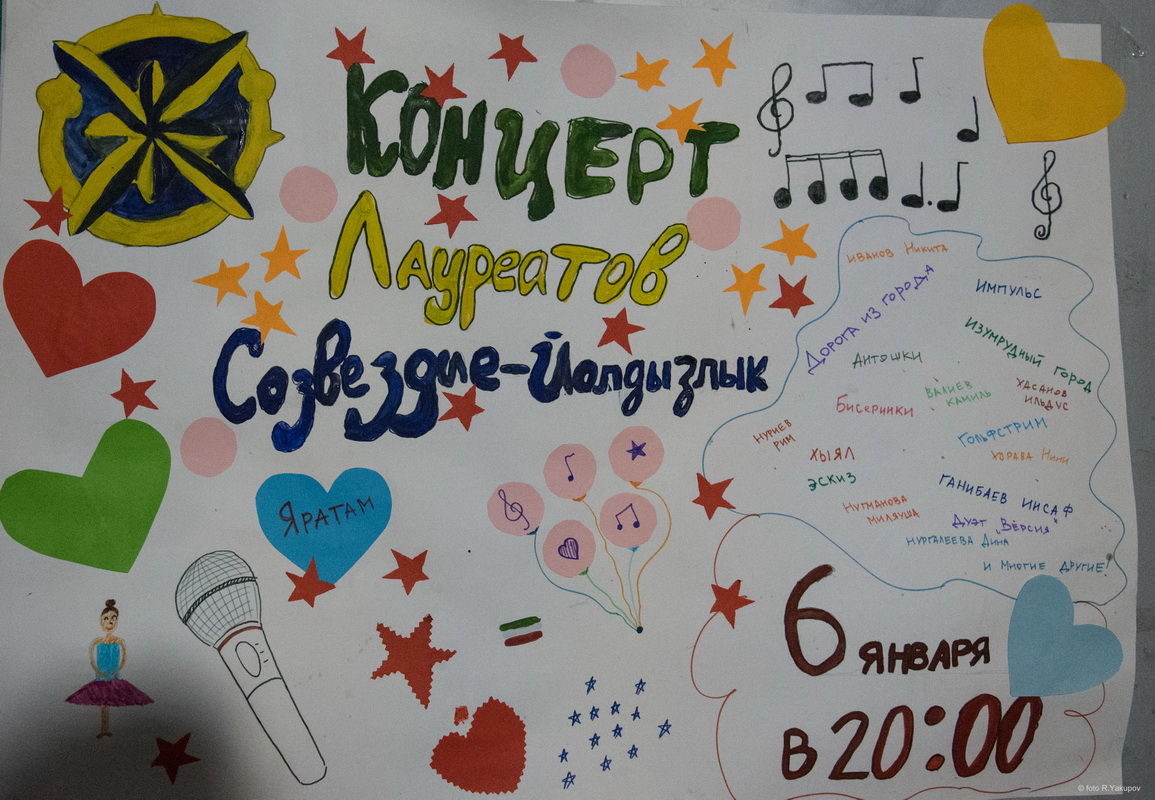 Концерт
Лауреатов
Созвездие-Йолдызлык
Иванов Никита
Дорога из города
Импульс
Изумрудный город
Антошки
Валиев
Камиль
Хасанов
Ильдус
Бисеринки
Нуриев
Рим
Хыял
Гольфстрим
Хорава Нини
Эскиз
Ганибаев Инсаф
Нугманова
Миляуша
Дуэт „Версия"
Нургалеева Дина
и многие другие!
Яратам
6 января
в 20:00
© foto R.Yakupov